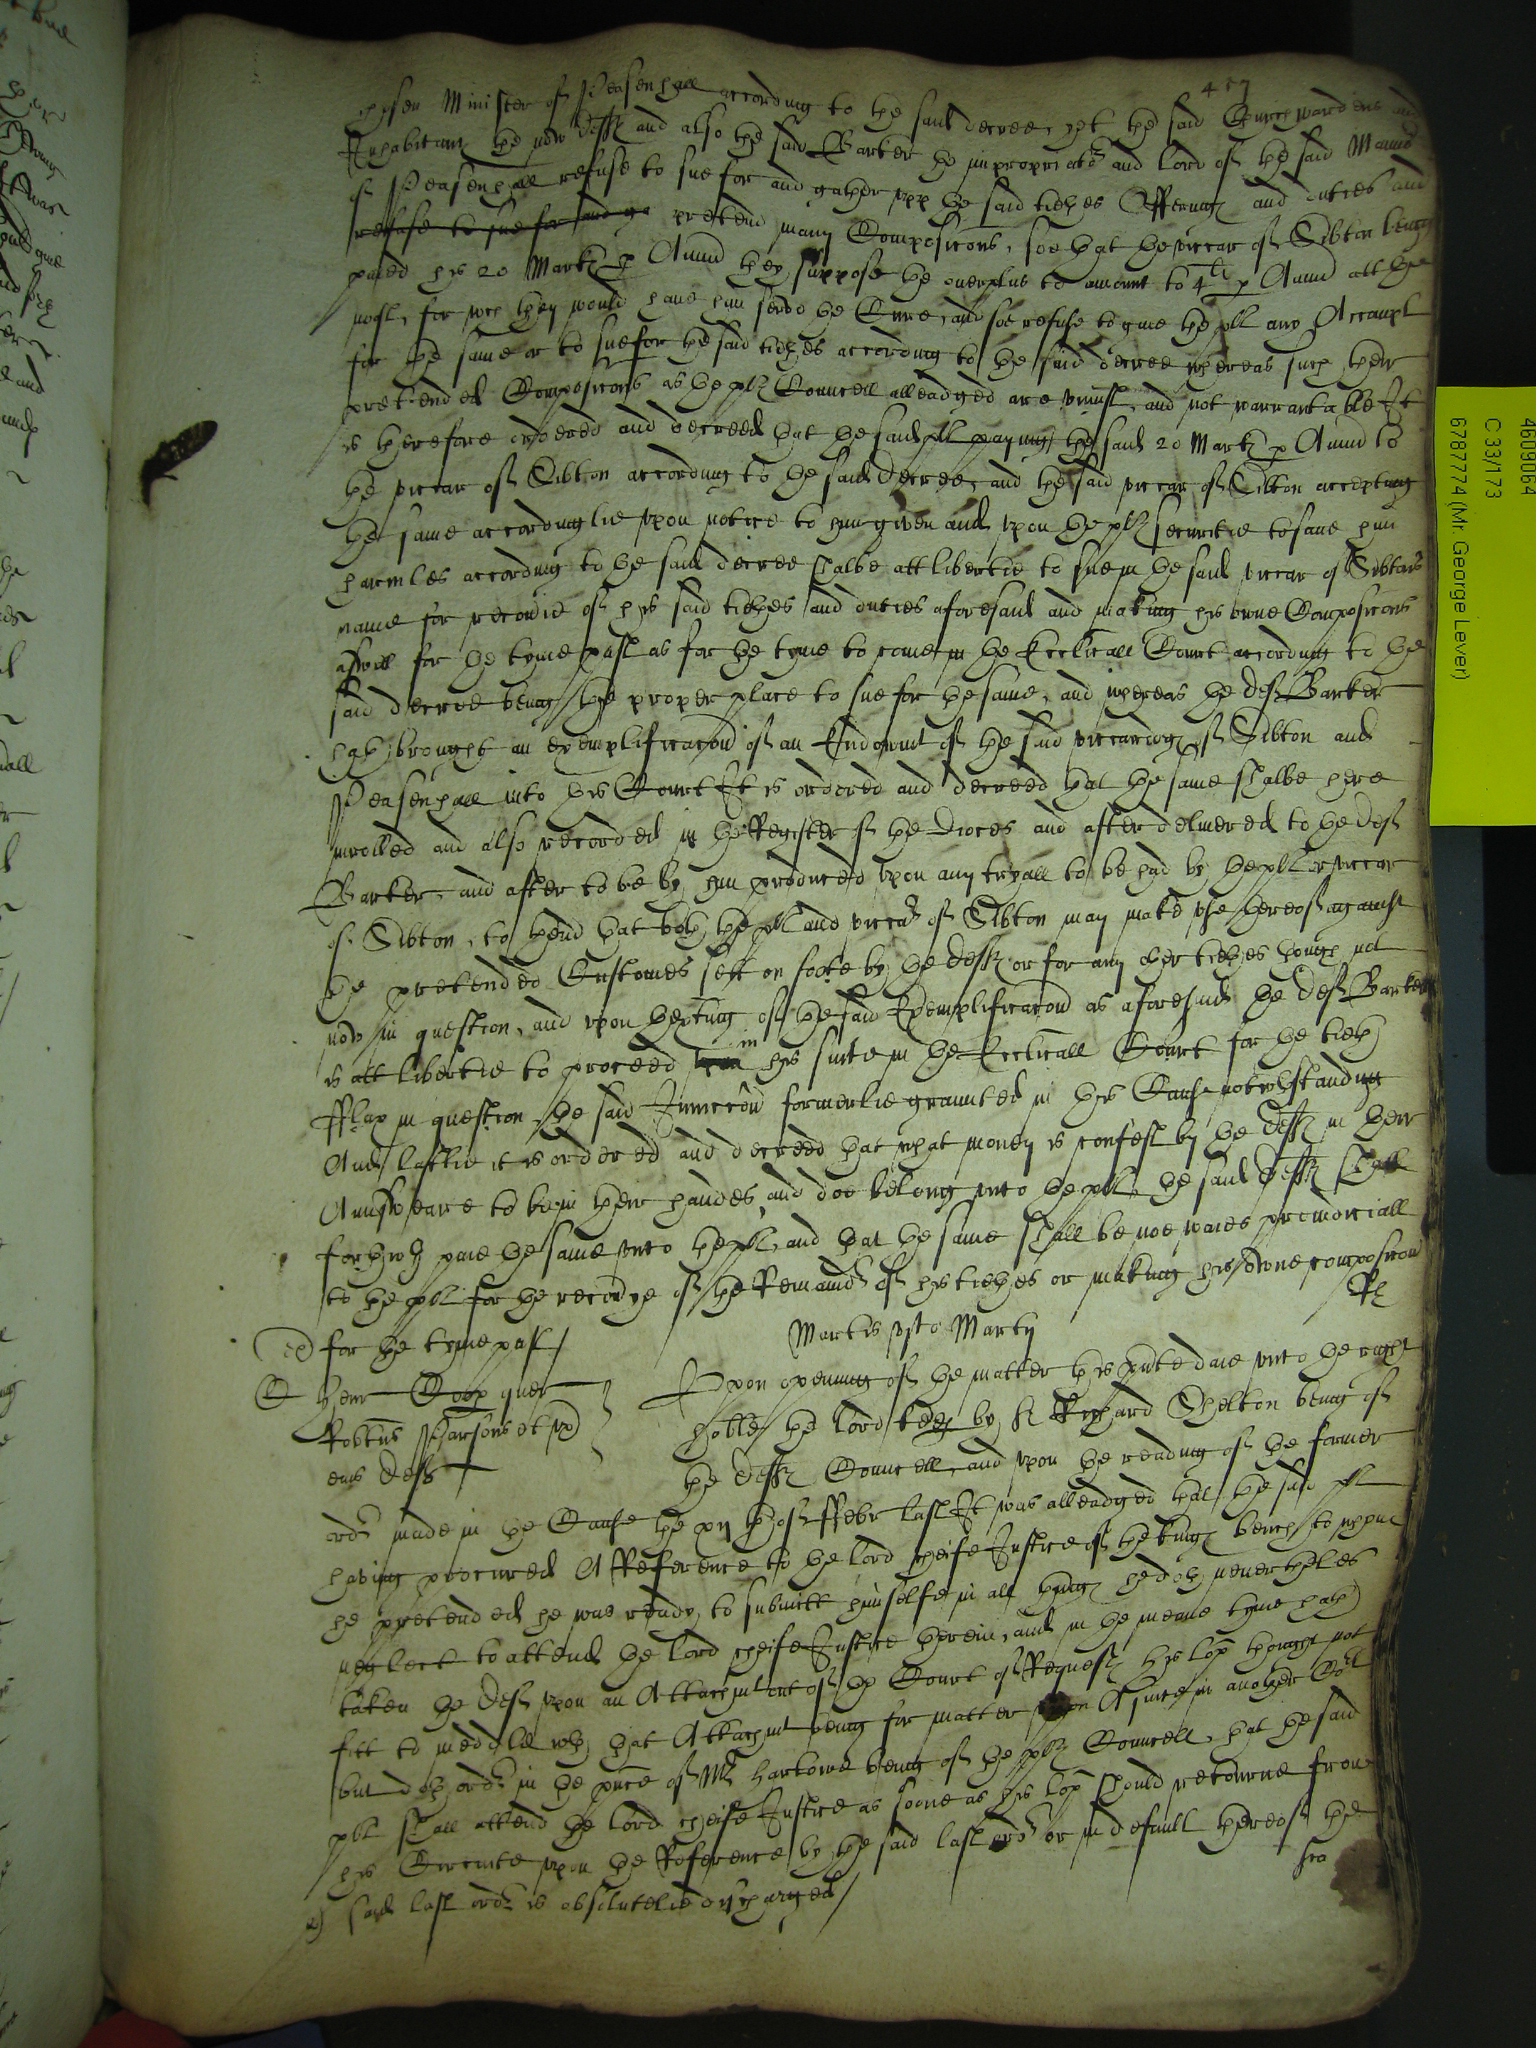 chosen Minister of Peasenhall according to the said decree, yet the said Churchwardens and
Inhabitants the now defts and also the said Barker the impropriator and lord of the said Mannor
of Peasenhall refuse to sue for and gather upp the said tithes Offerings and duties and
refuse to sue for and ga pretend many Composicons, soe that the viccar of Sibton being
paied his 20 Marks p Annu they suppose the overplus to amount to 4li p Annu att the
most, for wch they would have him serve the Cure, and soe refuse to give the pll any Accompt
for the same or to sue for the said tithes according to the said decree whereas such their
pretended Composicons as the plts Councell alleadged are uniust, and not warrantable It
is therefore ordered and decreed that the said pll paying the said 20 Marks p Annu to
the viccar of Sibton according to the said decree, and the said viccar of Sibton accepting
the same accordinglie upon notice to him given and upon the plts securitie to save him
harmles according to the said decree shalbe att libertie to sue in the said viccar of Sibtons
name for recoverie of his said tithes and duties aforesaid and making his owne Composicons
aswell for the tyme past as for the tyme to come in the Eccliasticall Court according to the
said decree being the proper place to sue for the same, and whereas the deft Barker
hath brought an exemplificacon of an Endowmt of the said viccaridge of Sibton and
Peasenhall into this Court It is ordered and decreed that the same shalbe here
inrolled and also recorded in the Register of the Dioces and after delivered to the deft
Barker, and after to be by him produced upon any tryall to be had by the pll or viccar
of Sibton, to thend that both the pll and viccar of Sibton may make use thereof against
the pretended Customes sett on foote by the defts or for any other tithes though not
now in question, and upon thexting of the said Exemplificacon as aforesaid the deft Barker
is att libertie to proceed in his suite in the Eccliasticall Court for the tieth
Fflax in question the said Iniuncon formerlie graunted in this Cause notwthstanding
And lastlie it is ordered and decreed that what money is confest by the defts in their
Aunsweare to be in their handes, and doe belong unto the pll, the said defts shall
forthwth paie the same unto the pll, and that the same shall be noe waies preiudiciall
to the pll for the recoverye of the Remaindr of his tithes or making his owne composicon
for the tyme past
Martis vjto Martij
Hen Coop quer
Robtus Parsons et ux
eius deft
Upon opening of the matter this pnte daie unto the right
hoble the lord keep by Richard Shelton being of
the defts Councell, and upon the reading of the former
ordr made in the Cause the xij th of Ffebr last It was alleadged that the said pl
having procured A Reference to the lord cheife Justice of the kings bench to whom
he pretended he was ready to submitt himselfe in all things he doth neverthles
neglect to attend the lord cheife Justice therein, and in the meane tyme hath
taken the deft upon an Attachment of the Court of Requests his lop thought not
fitt to meddle wth that Attachmt being for matter upon A suite in another Cort
but doth ordr in the pnce of Mr hartowe being of the plts Councell, that the said
pll shall attend the lord cheife Justice as soone as his lop should retourne from
his Circuite upon the Reference by the said last ordr or in default thereof the
said last ordr is absolutelie discharged
4609064
C 33/173
6787774 (Mr. George Lever)